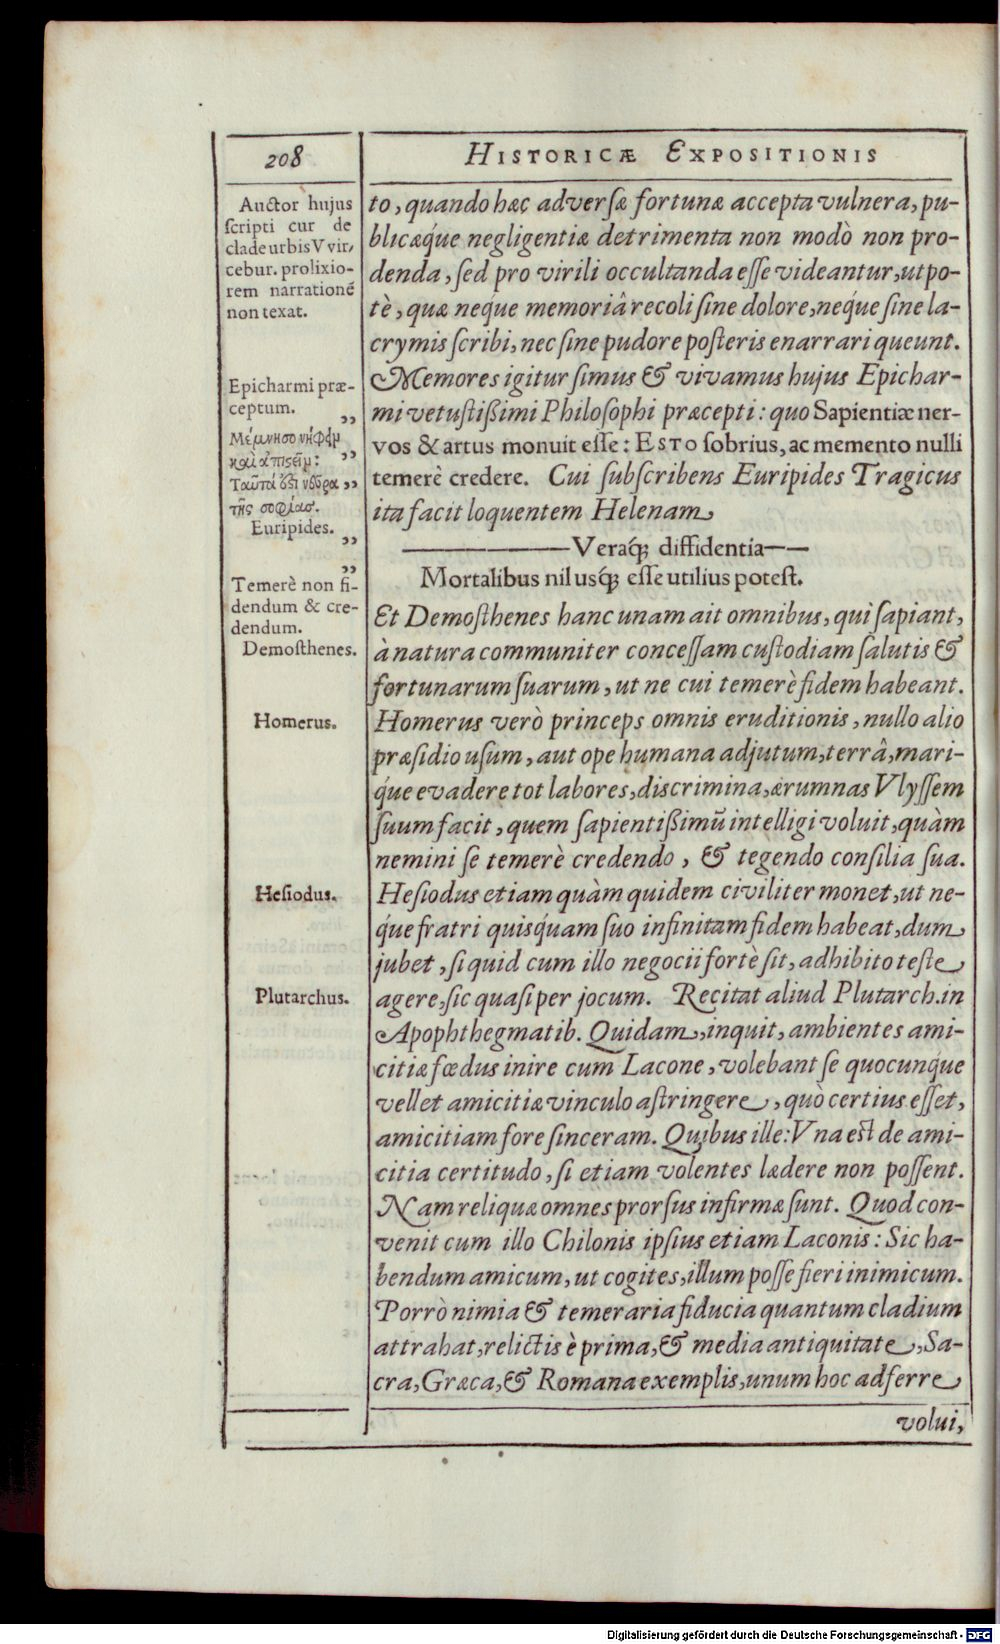 208
HISTORICÆ EXPOSITIONIS
Auctor hujus
ſcripti cur de
clade urbis Vvir,
cebur. prolixio-
rem narrationē
non texat.
Epicharmi præ-
ceptum.
Μέμνησο νήφειν
καὶ ἀπιστεῖν:
Ταῦτά ἐστι νεῦρα
τῆς σοφίας.
Euripides.
Temerè non fi-
dendum & cre-
dendum.
Demoſthenes.
Homerus.
Heſiodus.
Plutarchus.
to, quando hæc adverſæ fortunæ accepta vulnera, pu-
blicæq́ue negligentiæ detrimenta non modò non pro-
denda, ſed pro virili occultanda eſſe videantur, utpo-
tè, quæ neque memoriâ recoli ſine dolore, neq́ue ſine la-
crymis ſcribi, nec ſine pudore poſteris enarrari queunt.
Memores igitur ſimus & vivamus hujus Epichar-
mi vetuſtißimi Philoſophi præcepti: quo Sapientiæ ner-
vos & artus monuit eſſe: ESTO ſobrius, ac memento nulli
temerè credere. Cui ſubſcribens Euripides Tragicus
ita facit loquentem Helenam
—————Veraq́; diffidentia——
Mortalibus nil usq́; eſſe utilius poteſt.
Et Demoſthenes hanc unam ait omnibus, qui ſapiant,
à natura communiter conceſſam cuſtodiam ſalutis &
fortunarum ſuarum, ut ne cui temerè fidem habeant.
Homerus verò princeps omnis eruditionis, nullo alio
præſidio uſum, aut ope humana adjutum, terrâ, mari-
q́ue evadere tot labores, discrimina, ærumnas Vlyſſem
ſuum facit, quem ſapientißimū intelligi voluit, quàm
nemini ſe temerè credendo, & tegendo conſilia ſua.
Heſiodus etiam quàm quidem civiliter monet, ut ne-
q́ue fratri quisq́uam ſuo infinitam fidem habeat, dum
jubet, ſi quid cum illo negocii fortè ſit, adhibito teſte
agere, ſic quaſi per jocum. Recitat aliud Plutarch. in
Apophthegmatib. Quidam, inquit, ambientes ami-
citiæ fœdus inire cum Lacone, volebant ſe quocunq́ue
vellet amicitiæ vinculo aſtringere, quò certius eſſet,
amicitiam fore ſinceram. Quibus ille: Vna eſt de ami-
citia certitudo, ſi etiam volentes lædere non poſſent.
Nam reliquæ omnes prorſus infirmæ ſunt. Quod con-
venit cum illo Chilonis ipſius etiam Laconis: Sic ha-
bendum amicum, ut cogites, illum poſſe fieri inimicum.
Porrò nimia & temeraria fiducia quantum cladium
attrahat, relictis è prima, & media antiquitate, Sa-
cra, Græca, & Romana exemplis, unum hoc adferre
volui,
Digitalisierung gefördert durch die Deutsche Forschungsgemeinschaft - DFG